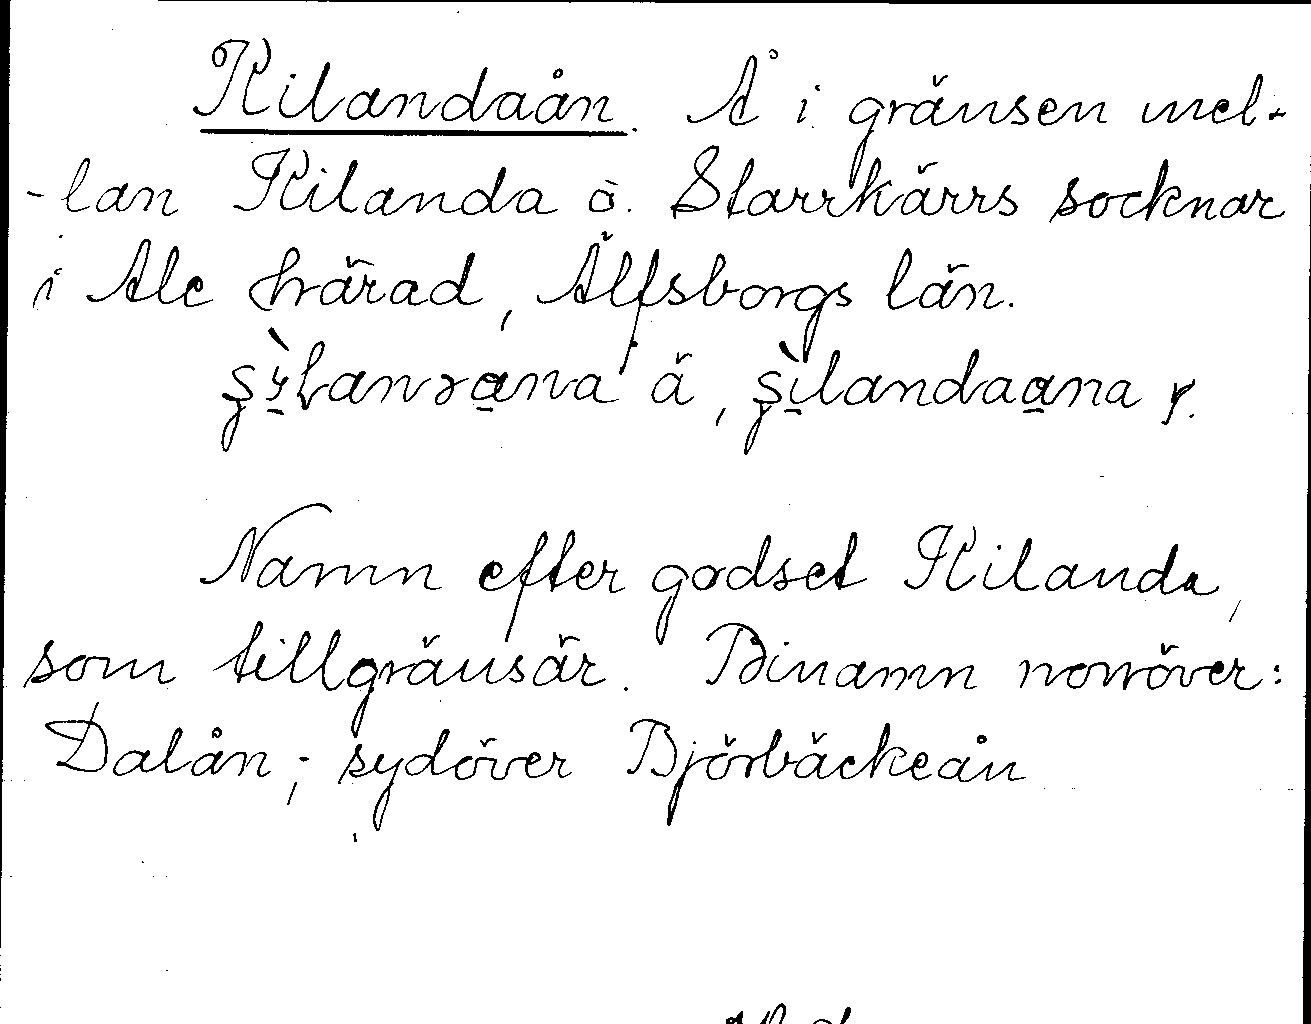 Kilandaån. Å i gränsen mel-
-lan Kilanda o. Starrkärrs socknar
i Ale härad, Älfsborgs län.
ä, 
Namn efter godset Kilanda,
som tillgränsär. Binamn norröver:
Dalån; sydöver Björbäckeån